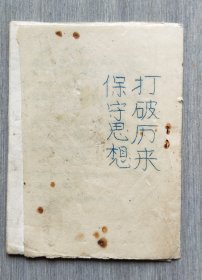 打破历来
保守思想